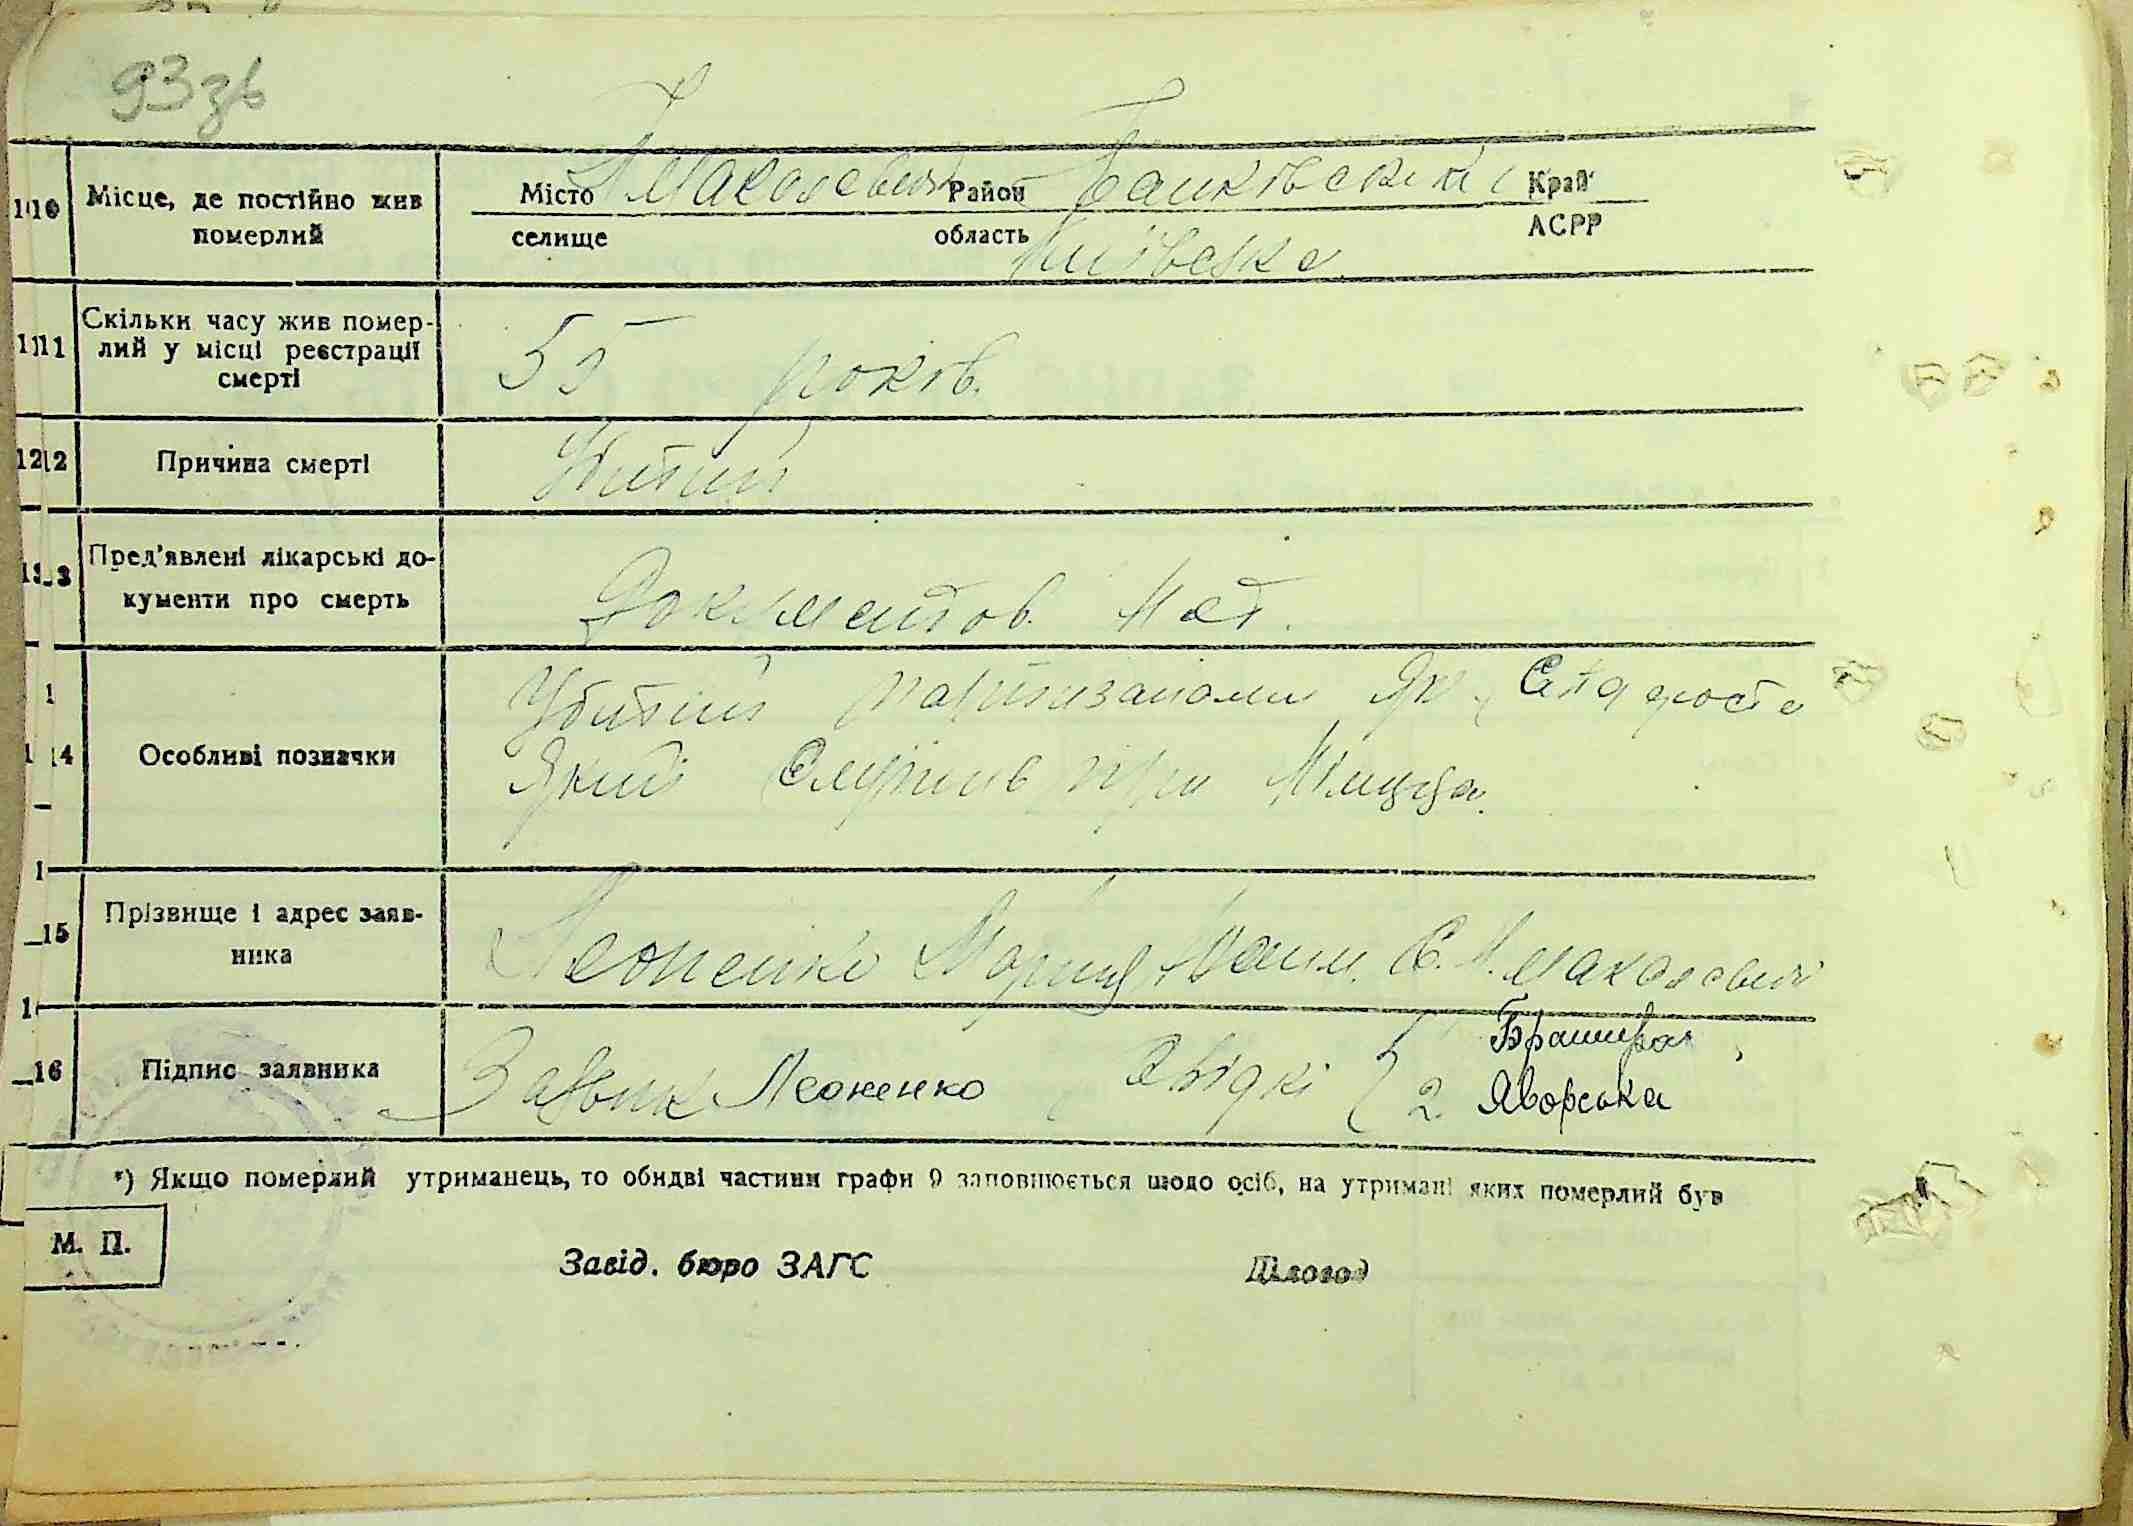 93 зв
10 Місце, де постійно жив
померлий
Місто Район Край
селище область АСРР
Київська
11 Скільки часу жив помер-
лий у місці реєстрації
смерті
55 років.
12 Причина смерті Убитий
13 Пред'явлені лікарські до-
кументи про смерть
Документов Нєт.
14 Особливі позначки
Убитий партизанами як Старроста
Який Служив при Німцца.
15 Прізвище і адрес заяв-
ника
Леоненко Марія
16 Підпис заявника Заявник Леоненко Свідкі 1
2 Яворська
*) Якщо померлий утриманець, то обидві частини графи 9 заповнюється щодо осіб, на утримані яких померлий був
М. П.
Завід. бюро ЗАГС Діловод